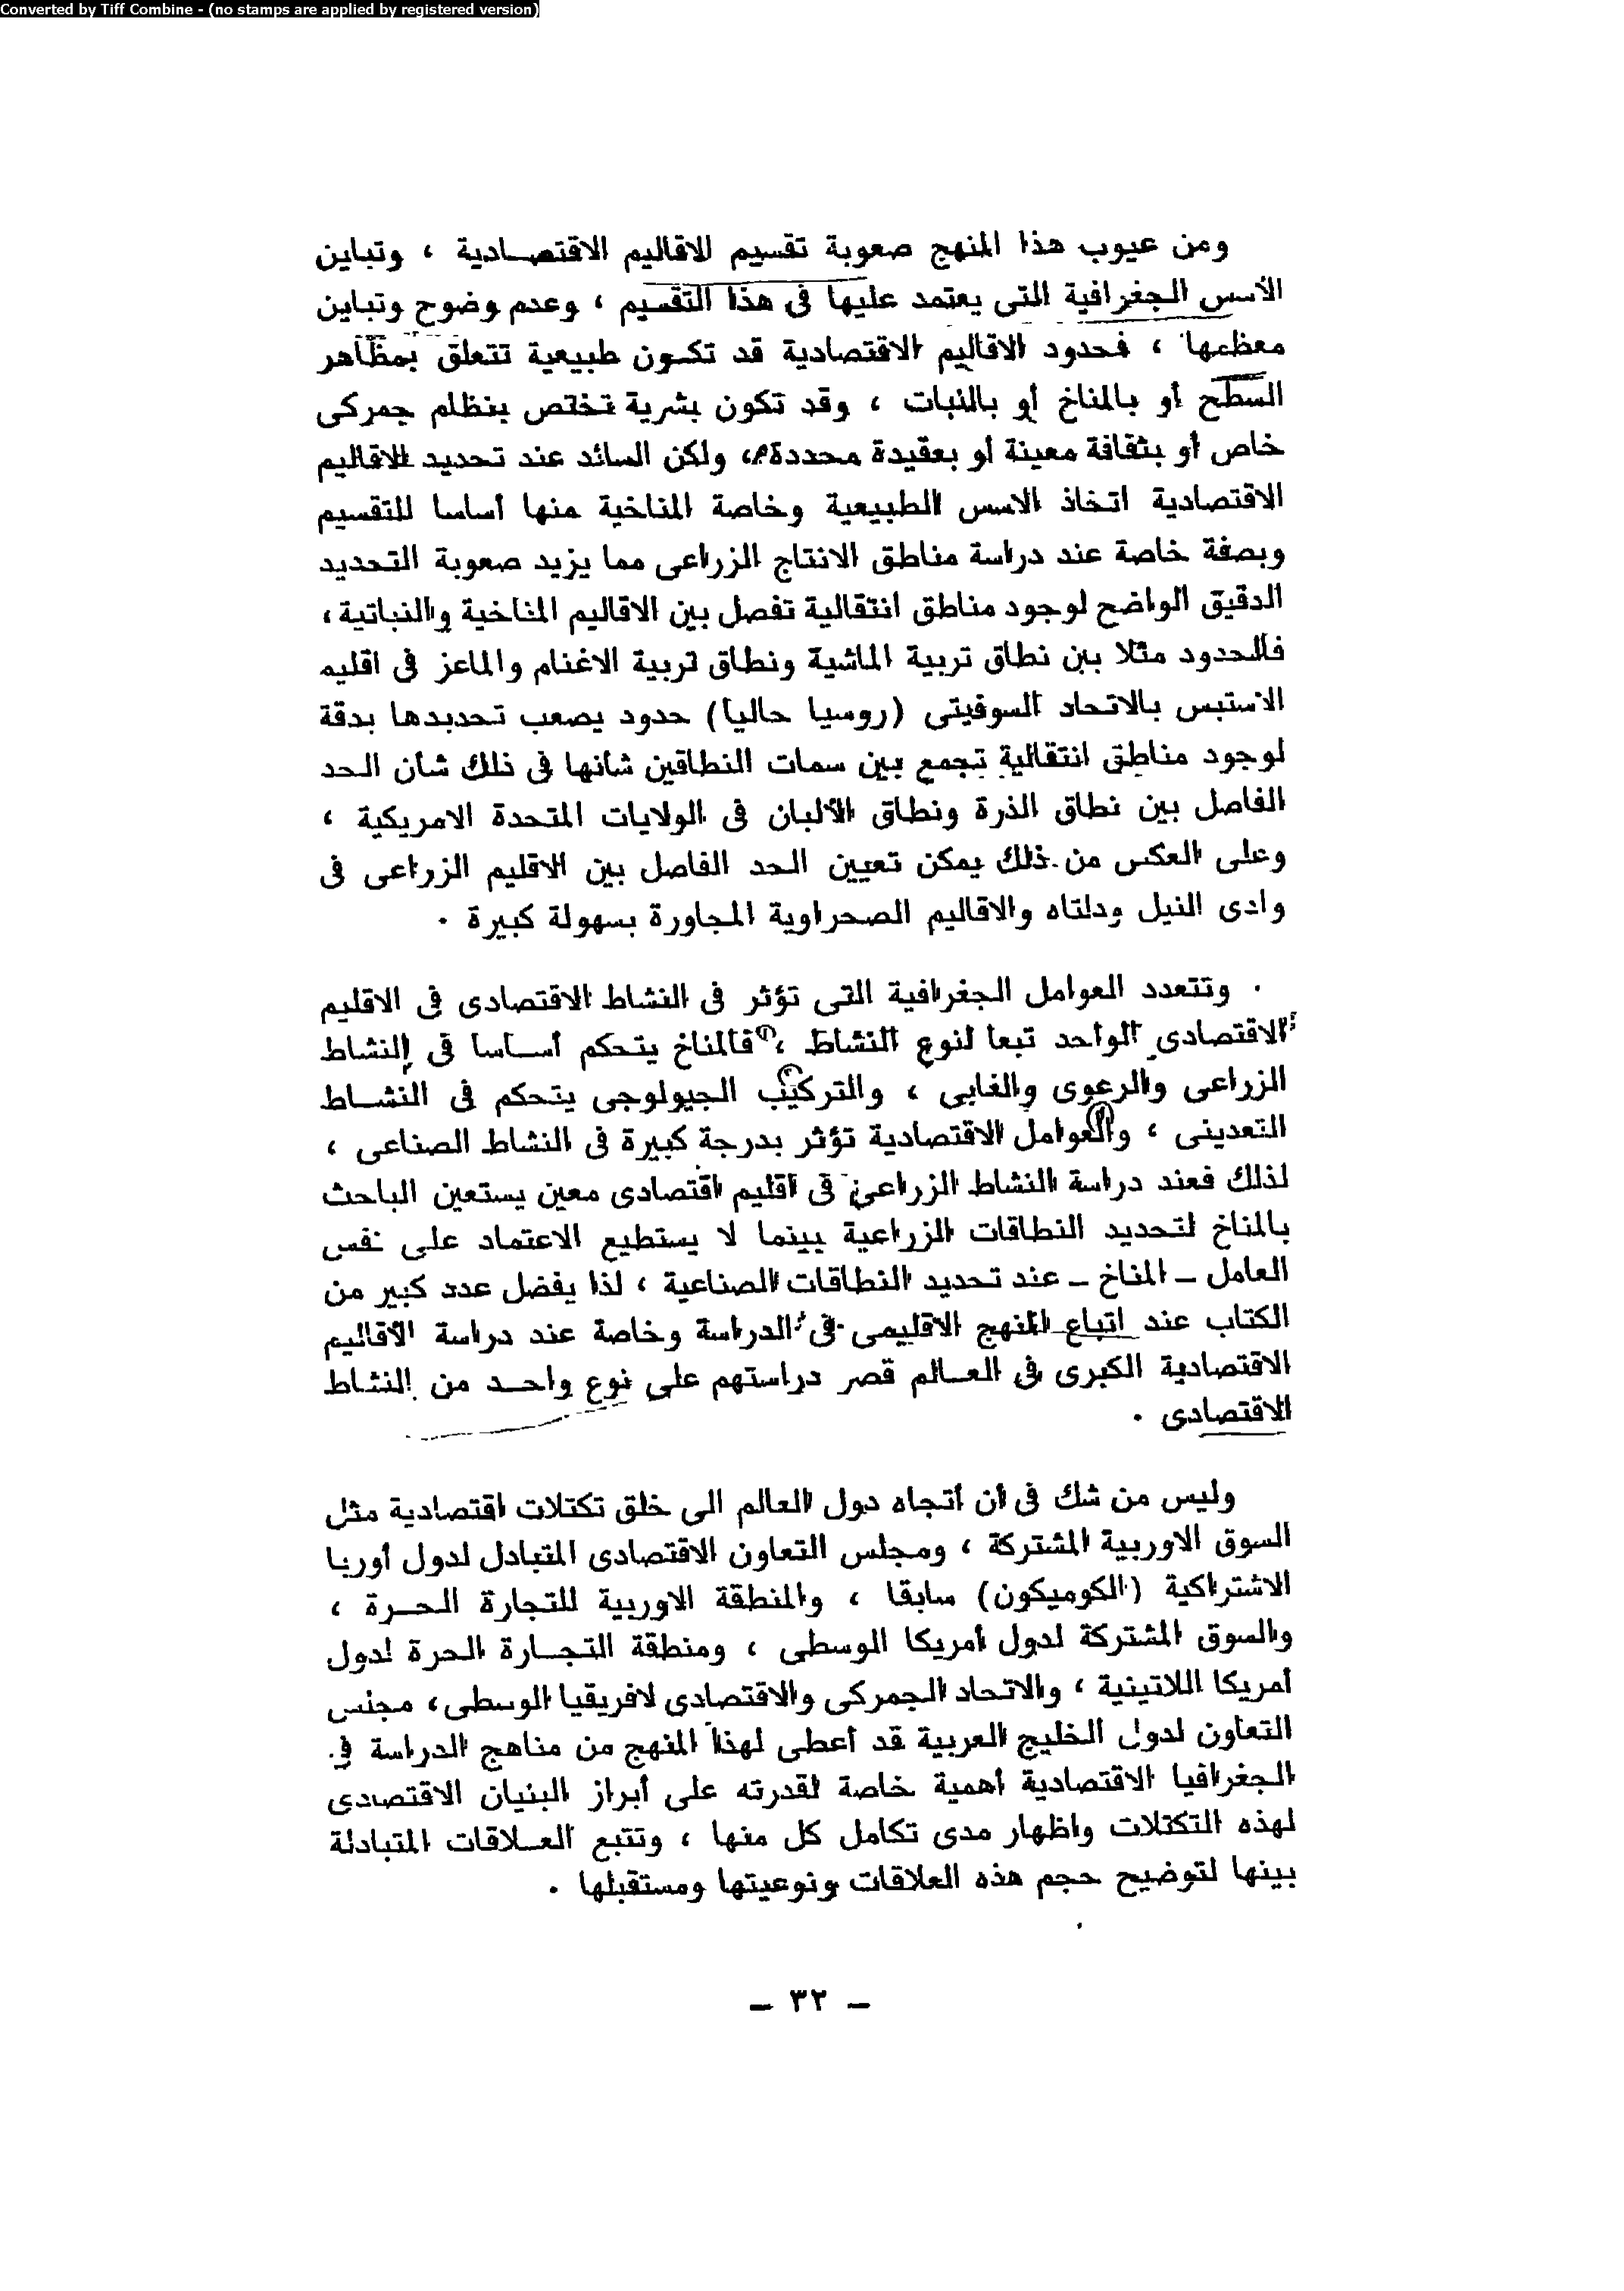 Converted by Tiff Combine - (no stamps are applied by registered version)
ومن عيوب هذا المنهج صعوبة تقسيم الاقاليم الاقتصادية ، وتباين
الأسس الجغرافية التى يعتمد عليها فى هذا التقسيم ، وعدم وضوح وتباين
معظمها ، فحدود الاقاليم الاقتصادية قد تكون طبيعية تتعلق بمظاهر
السطح أو بالمناخ أو بالنبات ، وقد تكون بشرية تختص بنظام جمركى
خاص أو بثقافة معينة أو بعقيدة محددة ، ولكن السائد عند تحديد الاقاليم
الاقتصادية اتخاذ الاسس الطبيعية وخاصة المناخية منها أساسا للتقسيم
وبصفة خاصة عند دراسة مناطق الانتاج الزراعى مما يزيد صعوبة التحديد
الدقيق الواضح لوجود مناطق انتقالية تفصل بين الاقاليم المناخية والنباتية ،
فالحدود مثلا بين نطاق تربية الماشية ونطاق تربية الاغنام والماعز فى اقليم
الاستبس بالاتحاد السوفيتى (روسيا حاليا) حدود يصعب تحديدها بدقة
لوجود مناطق انتقالية تجمع بين سمات النطاقين شأنها فى ذلك شأن الحد
الفاصل بين نطاق الذرة ونطاق الألبان فى الولايات المتحدة الامريكية ،
وعلى العكس من ذلك يمكن تعيين الحد الفاصل بين الاقليم الزراعى فى
وادى النيل ودلتاه والاقاليم الصحراوية المجاورة بسهولة كبيرة .
وتتعدد العوامل الجغرافية التى تؤثر فى النشاط الاقتصادى فى الاقليم
الاقتصادى الواحد تبعا لنوع النشاط ، فالمناخ يتحكم أساسا فى النشاط
الزراعى والرعوى والغابى ، والتركيب الجيولوجى يتحكم فى النشاط
التعدينى ، والعوامل الاقتصادية تؤثر بدرجة كبيرة فى النشاط الصناعى ،
لذلك فعند دراسة النشاط الزراعى فى اقليم اقتصادى معين يستعين الباحث
بالمناخ لتحديد النطاقات الزراعية بينما لا يستطيع الاعتماد على نفس
العامل - المناخ - عند تحديد النطاقات الصناعية ، لذا يفضل عدد كبير من
الكتاب عند اتباع المنهج الاقليمى فى الدراسة وخاصة عند دراسة الأقاليم
الاقتصادية الكبرى فى العالم قصر دراستهم على نوع واحد من النشاط
الاقتصادى .
وليس من شك فى أن أتجاه دول العالم الى خلق تكتلات اقتصادية مثل
السوق الاوربية المشتركة ، ومجلس التعاون الاقتصادى المتبادل لدول أوربا
الاشتراكية (الكوميكون) سابقا ، والمنطقة الاوربية للتجارة الحرة ،
والسوق المشتركة لدول أمريكا الوسطى ، ومنطقة التجارة الحرة لدول
أمريكا اللاتينية ، والاتحاد الجمركى والاقتصادى لافريقيا الوسطى ، مجلس
التعاون لدول الخليج العربية قد أعطى لهذا المنهج من مناهج الدراسة فى
الجغرافيا الاقتصادية أهمية خاصة لقدرته على أبراز البنيان الاقتصادى
لهذه التكتلات واظهار مدى تكامل كل منها ، وتتبع العلاقات المتبادلة
بينها لتوضيح حجم هذه العلاقات ونوعيتها ومستقبلها .
- ٣٢ -